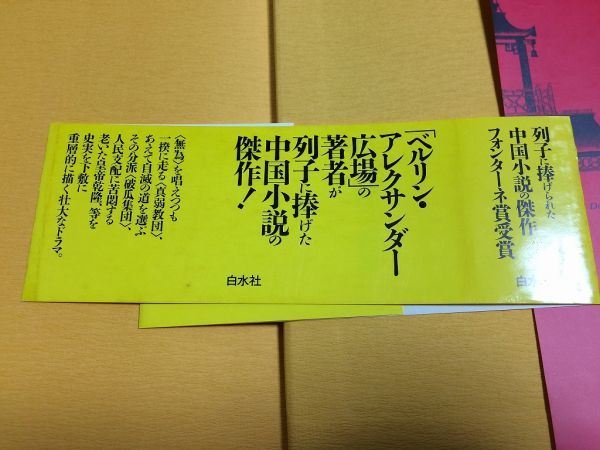 列子に捧げられた
中国小説の傑作
フォンターネ賞受賞
白水
「ベルリン・
アレクサンダー
広場」の
著者が
列子に捧げた
中国小説の
傑作！
白水社
〈無為〉を唱えつつも
一揆に走る〈真弱教団〉、
あえて自滅の道を選ぶ
その分派〈破瓜集団〉、
人民支配に苦悶する
老いた皇帝乾隆、等を
史実を下敷に
重層的に描く壮大なドラマ。